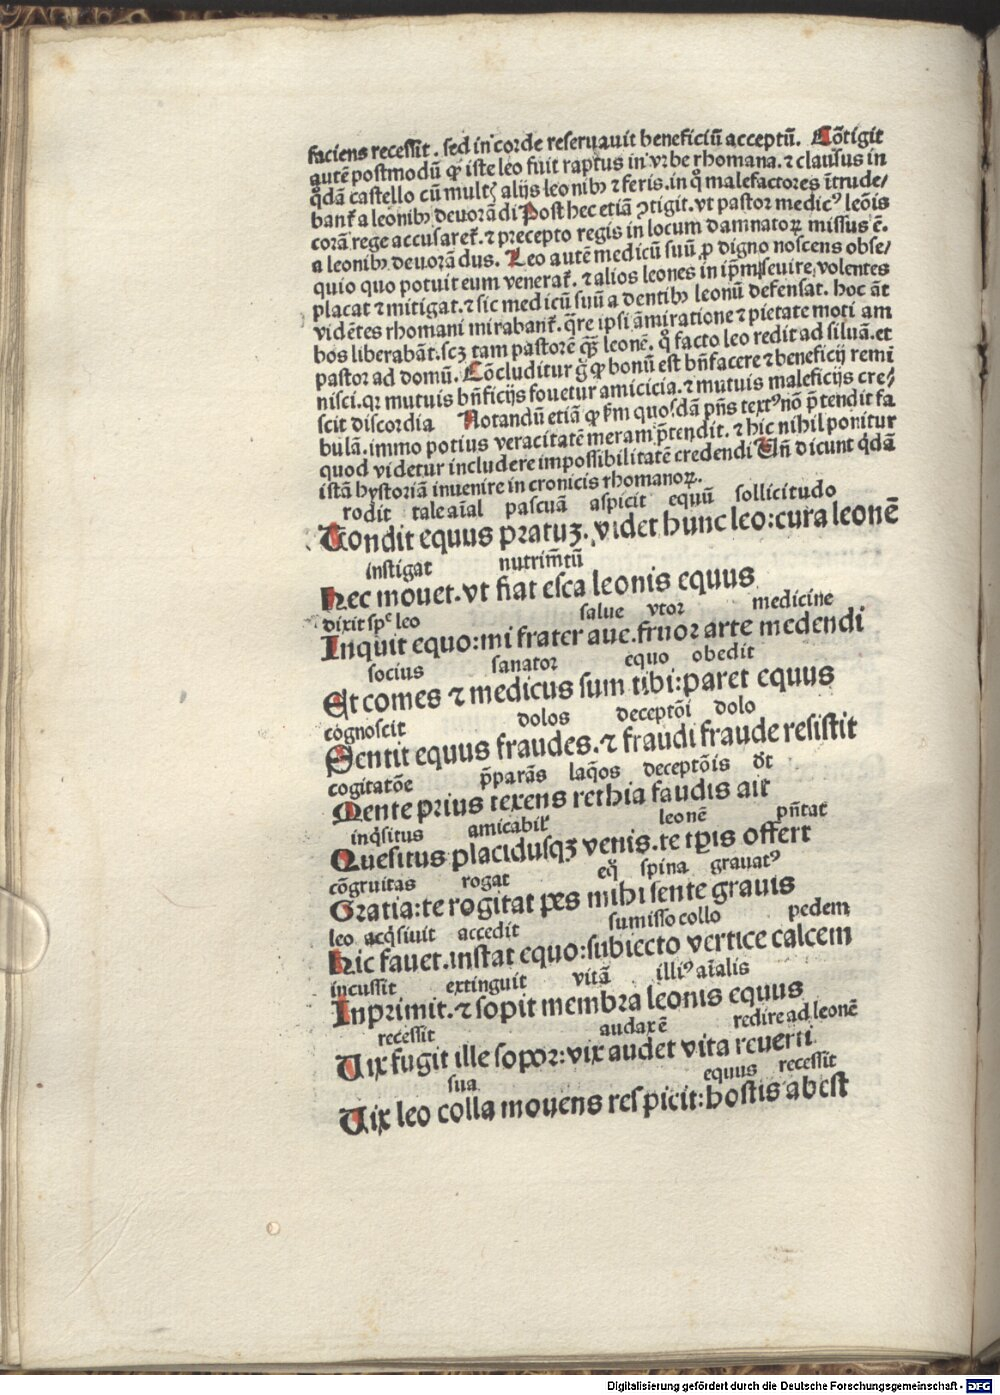 faciens recessit . sed in corde reseruauit beneficiū acceptū. Cōtigit
autē postmodū ꝙ iste leo fuit raptus in vrbe rhomana. ⁊ clausus in
qͦdā castello cū multꝭ alijs leonibꝫ ⁊ feris. in qͦ malefactores ītrude/
banṫ a leonibꝫ deuorādi Post hec etiā ꝯtigit. vt pastor medicꝰ leōis
corā rege accusareṫ. ⁊ precepto regis in locum damnatoꝝ missus ē.
a leonibꝫ deuorādus. Leo autē medicū suū ꝓ digno noscens obse/
quio quo potuit eum veneraṫ. ⁊ alios leones in ip̄m seuire volentes
placat ⁊ mitigat. ⁊ sic medicū suū a dentibꝫ leonū defensat. hoc āt
vidētes rhomani mirabanṫ. qr̄e ipsi āmiratione ⁊ pietate moti am
bos liberabāt. scꝫ tam pastorē qꝫ̄ leonē. qͦ facto leo redit ad siluā. et
pastor ad domū. Cōcluditur g̊ ꝙ bonū est bn̄facere ⁊ beneficij remi
nisci. qꝛ mutuis bn̄ficijs fouetur amicicia. ⁊ mutuis maleficijs cre/
scit discordia Notandū etiā ꝙ ẜm quosdā pn̄s textꝰ nō p̄tendit fa
bulā. immo potius veracitatē meram p̄tendit. ⁊ hic nihil ponitur
quod videtur includere impossibilitatē credendi Vn̄ dicunt qͥdā
istā hystoriā inuenire in cronicis rhomanoꝝ.
rodit tale aīal pascuā aspicit equū sollicitudo
Tondit equus pratuꝫ. videt hunc leo: cura leonē
instigat nutrim̄tū
Hec mouet. vt fiat esca leonis equus
dixit spᶜ leo salue vtor medicine
Inquit equo: mi frater aue. fruor arte medendi
socius sanator equo obedit
Et comes ⁊ medicus sum tibi: paret equus
cōgnoscit dolos deceptōi dolo
Sentit equus fraudes. ⁊ fraudi fraude resistit
cogitatōe p̄parās laq̄os deceptōis dt̄
Mente prius texens rethia faudis ait
inqͥsitus amicabilʼ leonē pn̄tat
Quesitus placidusqꝫ venis. te tp̄is offert
cōgruitas rogat eqͦ spina grauatꝰ
Gratia: te rogitat pes mihi sente grauis
leo acqͥsiuit accedit sumisso collo pedem
Hic fauet. instat equo: subiecto vertice calcem
incussit extinguit vitā illiꝰ aīalis
Inprimit. ⁊ sopit membra leonis equus
recessit audaxē redire ad leonē
Vix fugit ille sopor: vix audet vita reuerti
sua equus recessit
Vix leo colla mouens respicit: hostis abest
Digitalisierung gefördert durch die Deutsche Forschungsgemeinschaft - DFG